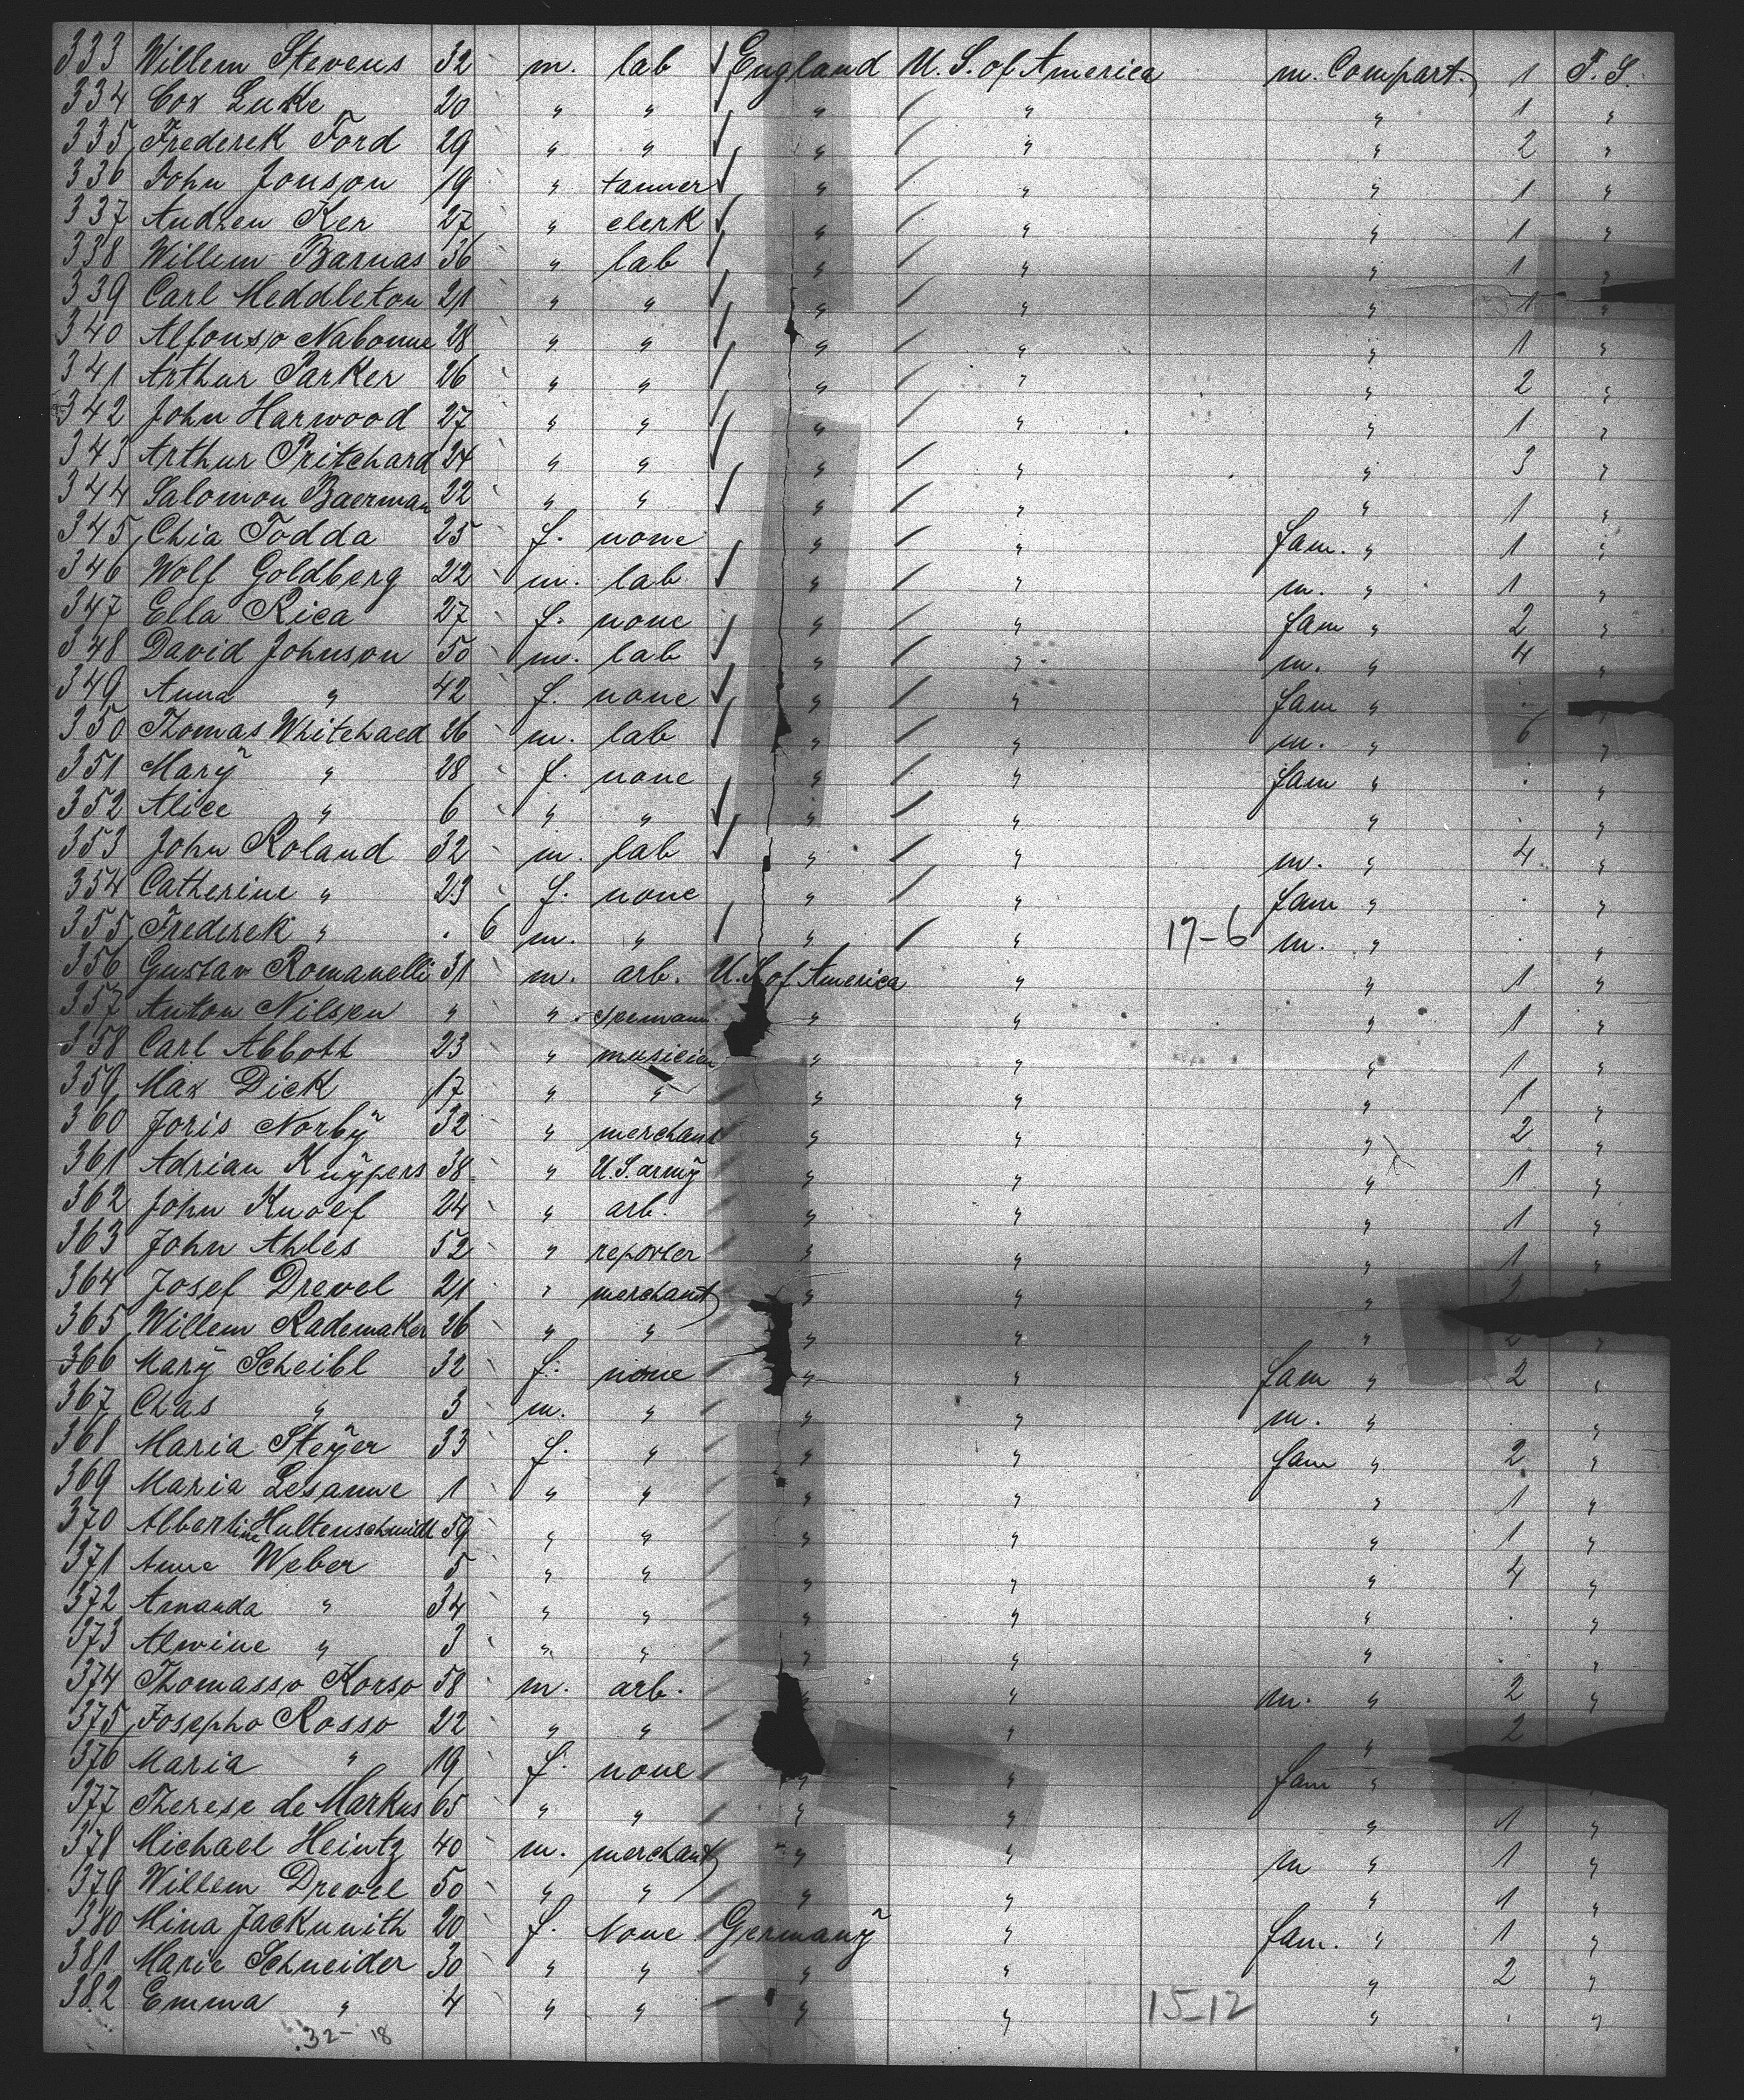 333 Willem Stevens 32 m. lab England U. S. of America m. Compart. 1 T. S.
334 Cox Luke 20 " " " " " 1 "
335 Frederek Ford 29 " " " " " 2 "
336 John Jonson 19 " tanner " " " 1 "
337 Andreu Ker 27 " clerk " " " 1 "
338 Willem Barnas 36 " lab " " " 1 "
339 Carl Meddleton 21 " " " " " 1 "
340 Alfonso Nabonne 28 " " " " " 1 "
341 Arthur Parker 26 " " " " " 2 "
342 John Harwood 27 " " " " " 1 "
343 Arthur Pritchard 24 " " " " " 3 "
344 Salomon Baerman 22 " " " " " 1 "
345 Chia Todda 25 f. none " " fam. " 1 "
346 Wolf Goldberg 22 m. lab. " " m. " 1 "
347 Ella Rica 27 f. none " " fam " 2 "
348 David Johnson 50 m. lab " " m. " 4 "
349 Anna " 42 f. none " " fam " . "
350 Thomas Whitehaed 26 m. lab " " m. " 6 "
351 Marÿ " 28 f. none " " fam " . "
352 Alice " 6 " " " " " . "
353 John Roland 32 m. lab " " m. " 4 "
354 Catherine " 23 f. none " " fam " . "
355 Frederek " . 6 m. " " " 17-6 m. " . "
356 Gustav Romanelli 31 m. arb. U.S. of America " " 1 "
357 Anton Nilsen " " " " " 1 "
358 Carl Abbott 23 " musician " " " 1 "
359 Max Dick 17 " " " " " 1 "
360 Joris Norbÿ 32 " merchant " " " 2 "
361 Adrian Kuÿpers 38 " U.S. armÿ " " " 1 "
362 John Knoef 24 " arb. " " " 1 "
363 John Ahles 52 " reporter " " " 1 "
364 Josef Drevel 21 " merchant " " " 2 "
365 Willem Rademaker 26 " " " " " 2 "
366 Marÿ Scheibl 32 f. none " " fam " 2 "
367 Chas " 3 m. " " " m. " . "
368 Maria Steÿer 33 f. " " " fam " 2 "
369 Maria Lesanne 1 " " " " " 1 "
370 Albertine Hultenschmidt 59 " " " " " 1 "
371 Anne Weber 5 " " " " " 4 "
372 Amanda " 34 " " " " " . "
373 Alwine " 3 " " " " " . "
374 Thomasso Korso 58 m. arb. " " m. " 2 "
375 Josepho Rosso 22 " " " " 2
376 Maria " 19 f. none " " fam "
377 Therese de Markus 65 " " " " " 1 "
378 Michael Heintz 40 m. merchant " " m " 1 "
379 Willem Drevel 50 " " " " " 1 "
380 Mina Jackunith 20 f. None Germanÿ " fam. " 1 "
381 Marie Schneider 30 " " " " " 2 "
382 Emma " 4 " " " " 15-12 " . "
32- 18